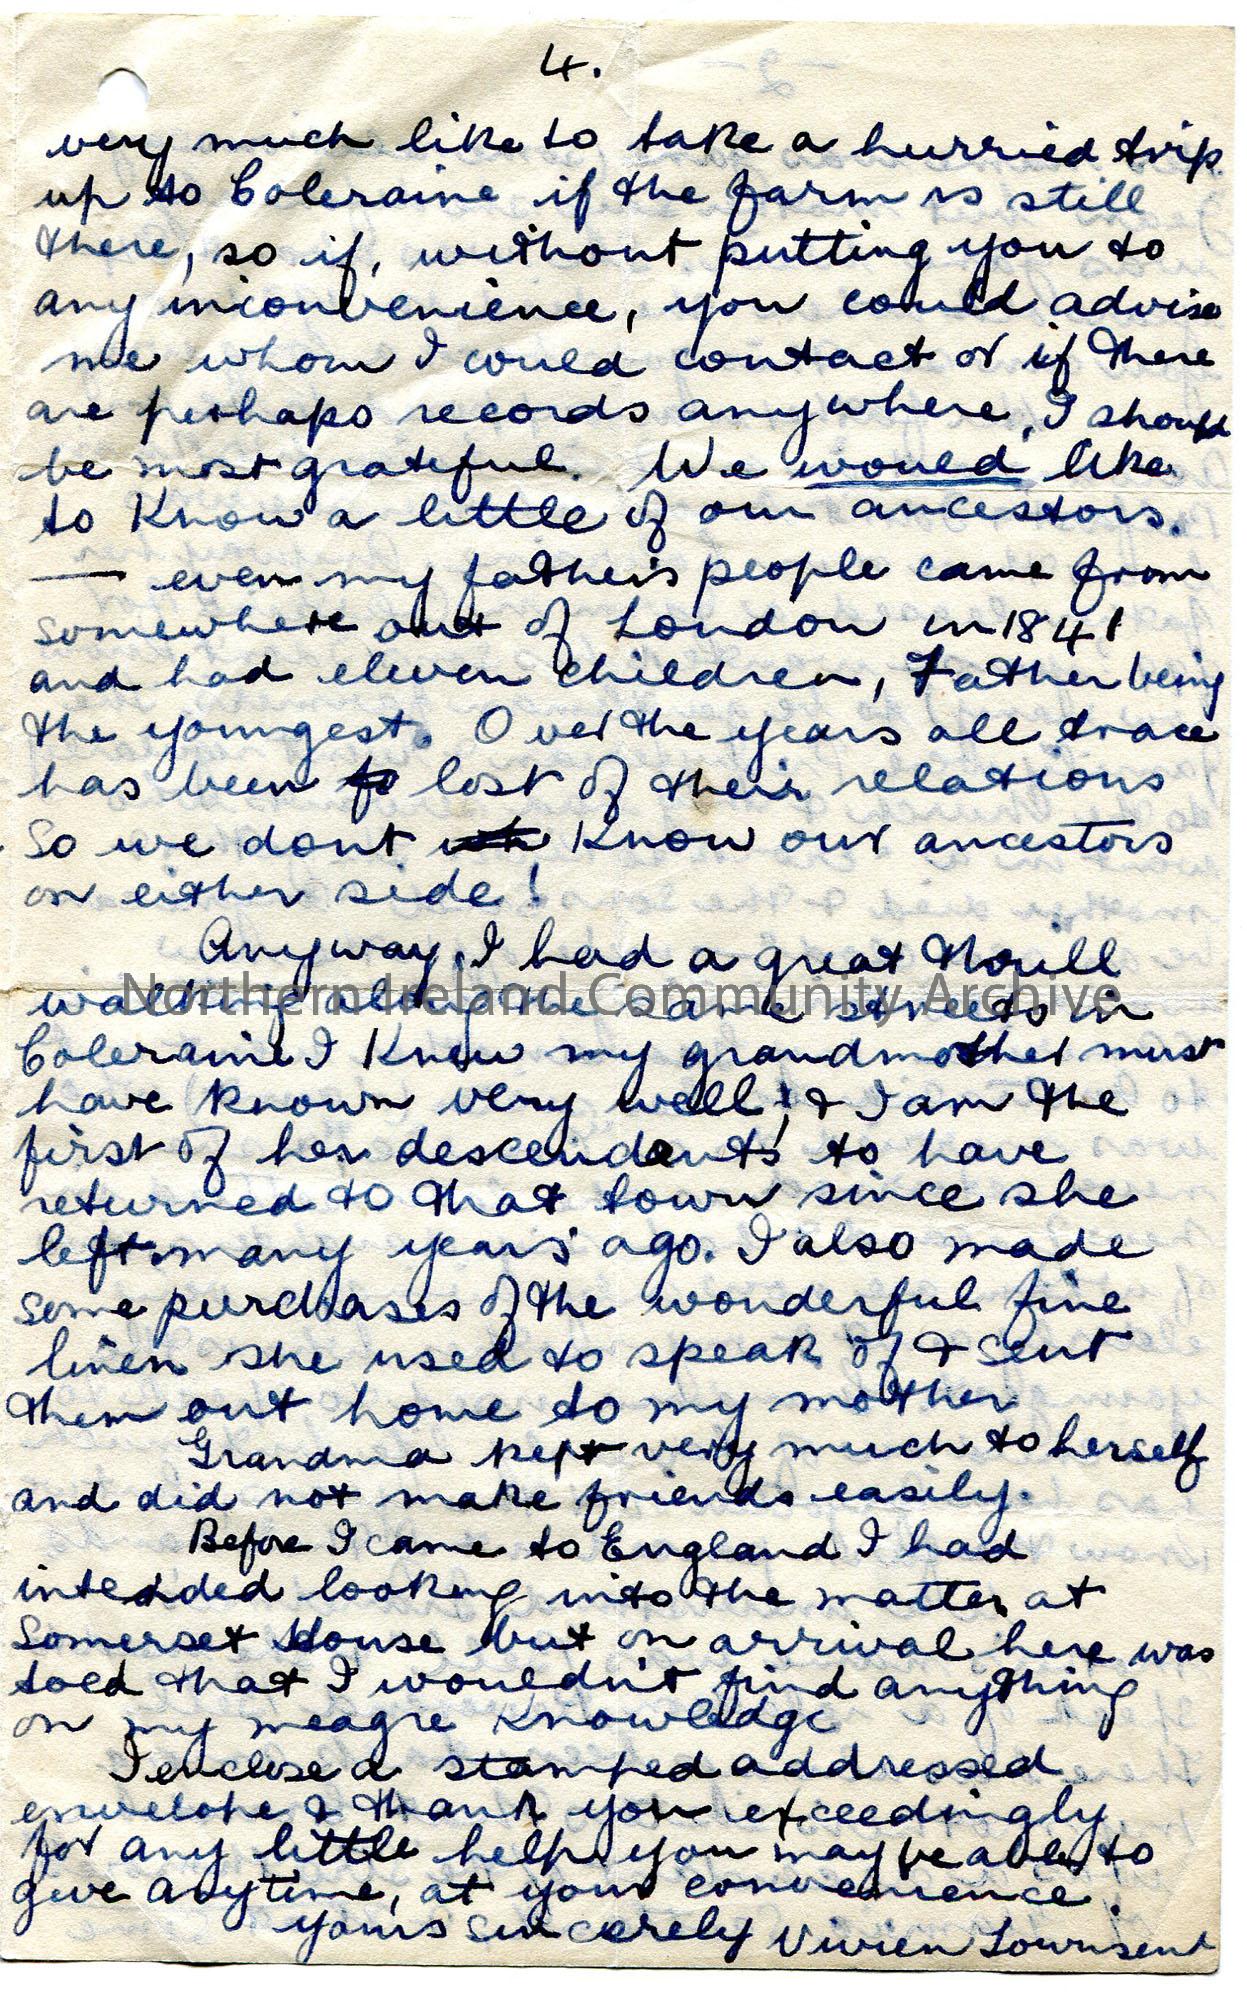 4.
very much like to take a hurried trip
up to Coleraine if the farm is still
there, so if, without putting you to
any inconvenience, you could advise
me whom I could contact or if there
are perhaps records anywhere, I should
be most grateful. We would like
to know a little of our ancestors.
— even my father's people came from
somewhere out of London in 1841
and had eleven children, Father being
the youngest. Over the years all trace
has been lost of their relations
So we dont know our ancestors
on either side!
Anyway, I had a great thrill
walking along the same streets in
Northern Ireland Community Archive
Coleraine I knew my grandmother must
have known very well! & I am the
first of her descendents to have
returned to that town since she
left many years ago. I also made
some purchases of the wonderful fine
linen she used to speak of & sent
them out home to my mother
Grandma kept very much to herself
and did not make friends easily.
Before I came to England I had
intended looking into the matter at
Somerset House but on arrival here was
told that I wouldn't find anything
on my meagre knowledge
I enclose a stamped addressed
envelope & thank you exceedingly
for any little help you may be able to
give anytime, at your convenience.
yours sincerely Vivien Townsend